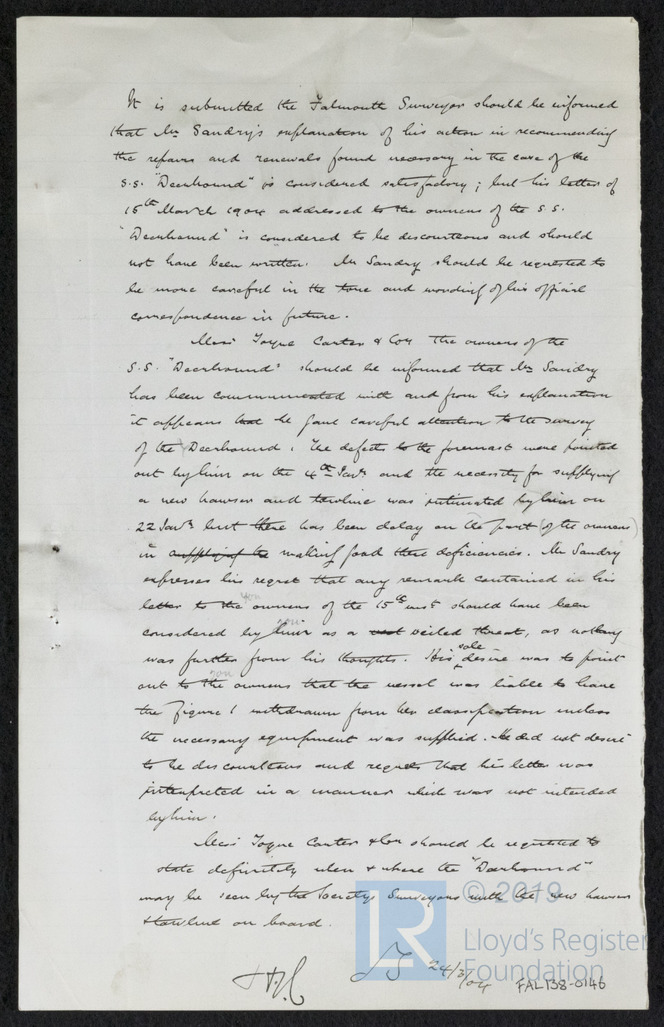 It is submitted the Falmouth Surveyor should be informed
that Mr Sandry's explanation of his action in recommending
the repairs and renewals found necessary in the case of the
S.S. "Deerhound" is considered satisfactory; but his letter of
15th March 1904 addressed to the owners of the S.S.
"Deerhound" is considered to be discourteous and should
not have been written. Mr Sandry should be requested to
be more careful in the tone and wording of his official
correspondence in future.
Messrs Toyne Carter & Co the owners of the
S.S. "Deerhound" should be informed that Mr Sandry
has been communicated with and from his explanation
it appears that he gave careful attention to the survey
of the Deerhound. The defects to the foremast were pointed
out by him on the 4th Jany and the necessity for supplying
a new hawser and towline was intimated by him on
22 Jany but there has been delay on the part (of the owners)
in supplying the making good these deficiencies. Mr Sandry
expresses his regret that any remark contained in his
letter to the owners of the 15th inst should have been
you
considered by him as a veiled threat, as nothing
you
was further from his thoughts. His sole desire was to point
out to the owners that the vessel was liable to have
you
the Figure 1 withdrawn from her classification unless
the necessary equipment was supplied. He did not desire
to be discourteous and regrets that his letter was
interpreted in a manner which was not intended
by him.
Messrs Toyne Carter & Co should be requested to
state definitely when & where the "Deerhound"
may be seen by the Society's Surveyors with the new hawser
& towline on board.
24/3/04
FAL138-0146
© 2019
LR
Lloyd's Register
Foundation